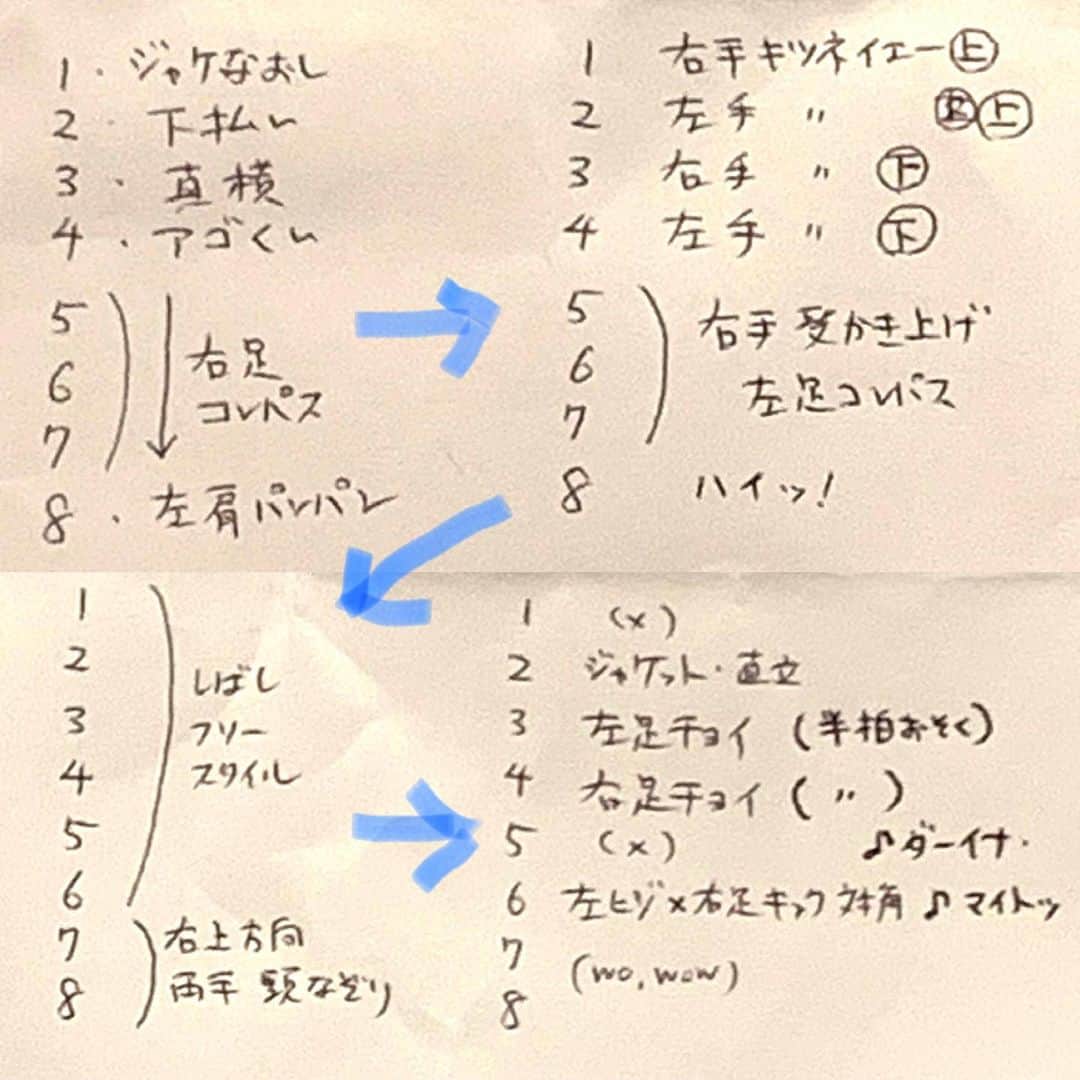 1・ジャケなおし
2・下払い
3・真横
4・アゴくい
5
6
7
右足
コンパス
8・左肩パンパン
1 右手キツネイエー㊤
2 左手 〃 ㊤
3 右手 〃 ㊦
4 左手 〃 ㊦
5
6
7
右手 かき上げ
左足コンパス
8 ハイッ!
1
2
3
4
5
6
しばし
フリー
スタイル
7
8
右上方向
両手 なぞり
1 (×)
2 ジャケット・直立
3 左足チョイ (半拍おそく)
4 右足チョイ (〃)
5 (×) ♪ダーイナ・
6 左ヒジ×右足キック対角 ♪マイトッ
7
8
(wo, wow)